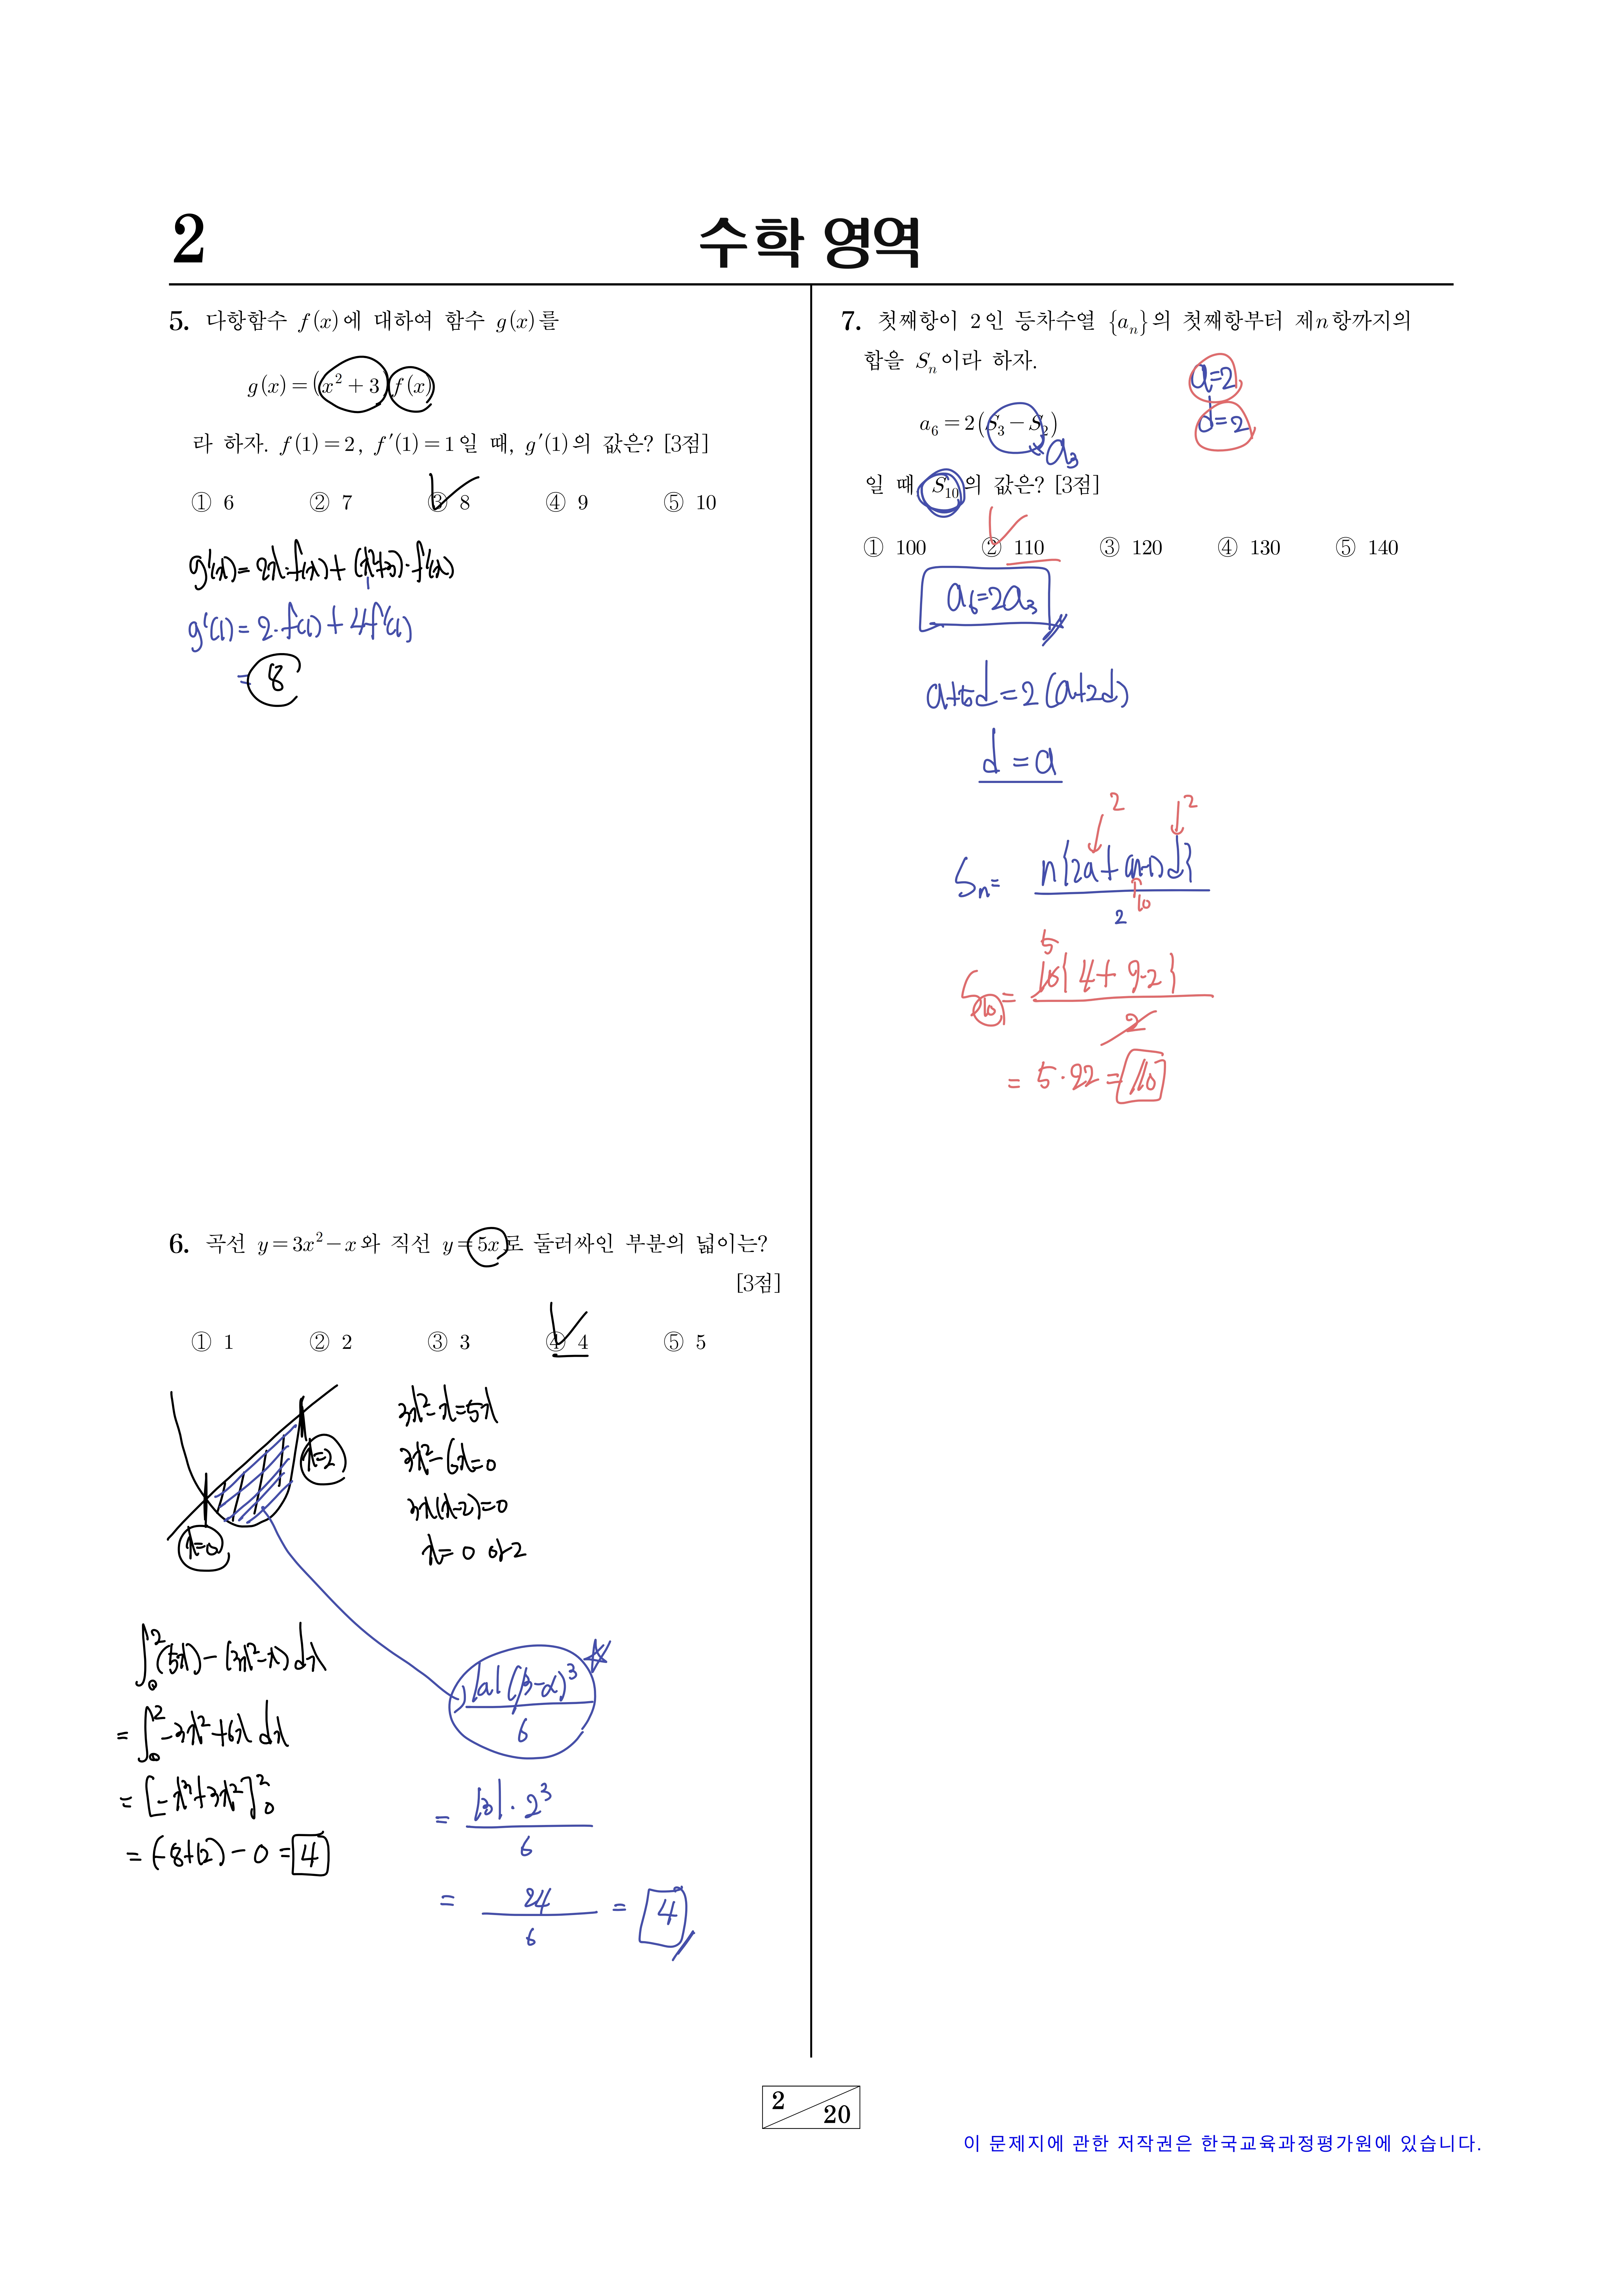 2
수학 영역
5. 다항함수 f(x)에 대하여 함수 g(x)를
g(x)=(x²+3)f(x)
라 하자. f(1)=2, f′(1)=1일 때, g′(1)의 값은? [3점]
① 6 ② 7 ③ 8 ④ 9 ⑤ 10
g′(x)=2x·f(x)+(x²+3)·f′(x)
g′(1)=2·f(1)+4f′(1)
= 8
6. 곡선 y=3x²−x와 직선 y=5x로 둘러싸인 부분의 넓이는?
[3점]
① 1 ② 2 ③ 3 ④ 4 ⑤ 5
x=2
x=0
3x²−x=5x
3x²−6x=0
3x(x−2)=0
x= 0 or 2
∫₀²(5x)−(3x²−x)dx
= ∫₀²−3x²+6x dx
= [−x³+3x²]₀²
= (−8+12)−0 = 4
|a|(β−α)³/6 ☆
= |3|·2³/6
= 24/6 = 4
7. 첫째항이 2인 등차수열 {aₙ}의 첫째항부터 제n항까지의
합을 Sₙ이라 하자.
a=2
d=2
a₆=2(S₃−S₂)
a₃
일 때, S₁₀의 값은? [3점]
① 100 ② 110 ③ 120 ④ 130 ⑤ 140
a₆=2a₃
a+5d=2(a+2d)
d=a
2 2
Sₙ= n{2a+(n−1)d}/2
10
5
S₁₀= 10{4+9·2}/2
= 5·22=110
2 20
이 문제지에 관한 저작권은 한국교육과정평가원에 있습니다.